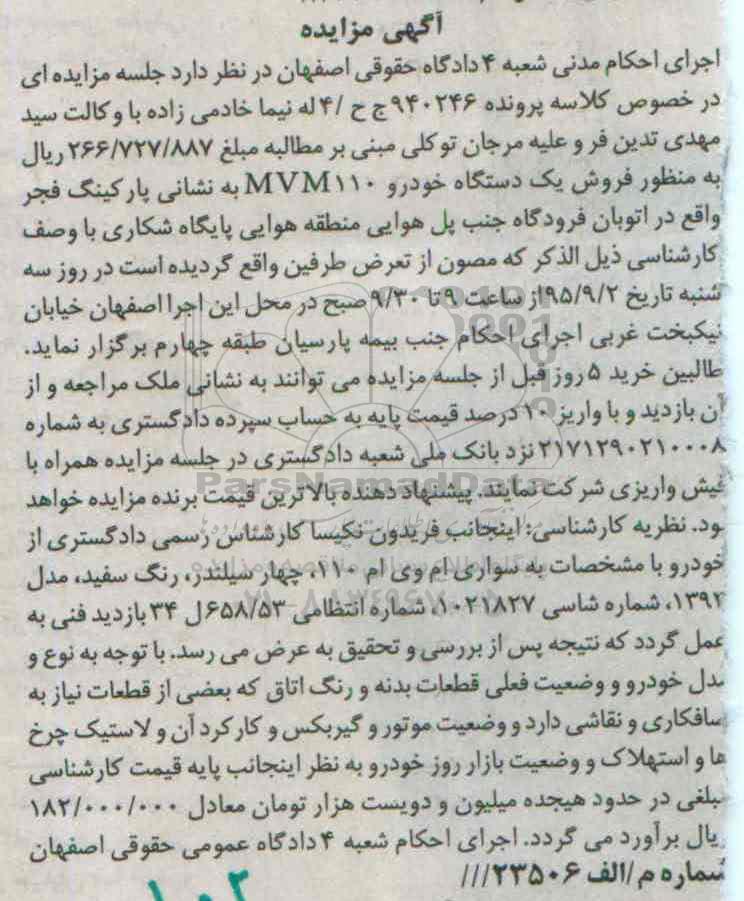 آگهی مزایده
اجرای احکام مدنی شعبه ۴ دادگاه حقوقی اصفهان در نظر دارد جلسه مزایده ای
در خصوص کلاسه پرونده ۹۴۰۲۴۶ ج ح /۴ له نیما خادمی زاده با وکالت سید
مهدی تدین فر و علیه مرجان توکلی مبنی بر مطالبه مبلغ ۲۶۶/۷۲۷/۸۸۷ ریال
به منظور فروش یک دستگاه خودرو MVM۱۱۰ به نشانی پارکینگ فجر
واقع در اتوبان فرودگاه جنب پل هوایی منطقه هوایی پایگاه شکاری با وصف
کارشناسی ذیل الذکر که مصون از تعرض طرفین واقع گردیده است در روز سه
شنبه تاریخ ۹۵/۹/۲ از ساعت ۹ تا ۹/۳۰ صبح در محل این اجرا اصفهان خیابان
نیکبخت غربی اجرای احکام جنب بیمه پارسیان طبقه چهارم برگزار نماید.
طالبین خرید ۵ روز قبل از جلسه مزایده می توانند به نشانی ملک مراجعه و از
آن بازدید و با واریز ۱۰ درصد قیمت پایه به حساب سپرده دادگستری به شماره
۲۱۷۱۲۹۰۲۱۰۰۰۸ نزد بانک ملی شعبه دادگستری در جلسه مزایده همراه با
فیش واریزی شرکت نمایند. پیشنهاد دهنده بالاترین قیمت برنده مزایده خواهد
بود. نظریه کارشناسی: اینجانب فریدون نکیسا کارشناس رسمی دادگستری از
خودرو با مشخصات به سواری ام وی ام ۱۱۰، چهار سیلندر، رنگ سفید، مدل
شماره شاسی ۱۰۲۱۸۲۷، شماره انتظامی ۶۵۸/۵۳ ل ۳۴ بازدید فنی به
عمل گردد که نتیجه پس از بررسی و تحقیق به عرض می رسد. با توجه به نوع و
مدل خودرو و وضعیت فعلی قطعات بدنه و رنگ اتاق که بعضی از قطعات نیاز به
صافکاری و نقاشی دارد و وضعیت موتور و گیربکس و کارکرد آن و لاستیک چرخ
ها و استهلاک و وضعیت بازار روز خودرو به نظر اینجانب پایه قیمت کارشناسی
مبلغی در حدود هیجده میلیون و دویست هزار تومان معادل ۱۸۲/۰۰۰/۰۰۰
ریال برآورد می گردد. اجرای احکام شعبه ۴ دادگاه عمومی حقوقی اصفهان
شماره م/الف ۲۳۵۰۶///
ParsNamadData